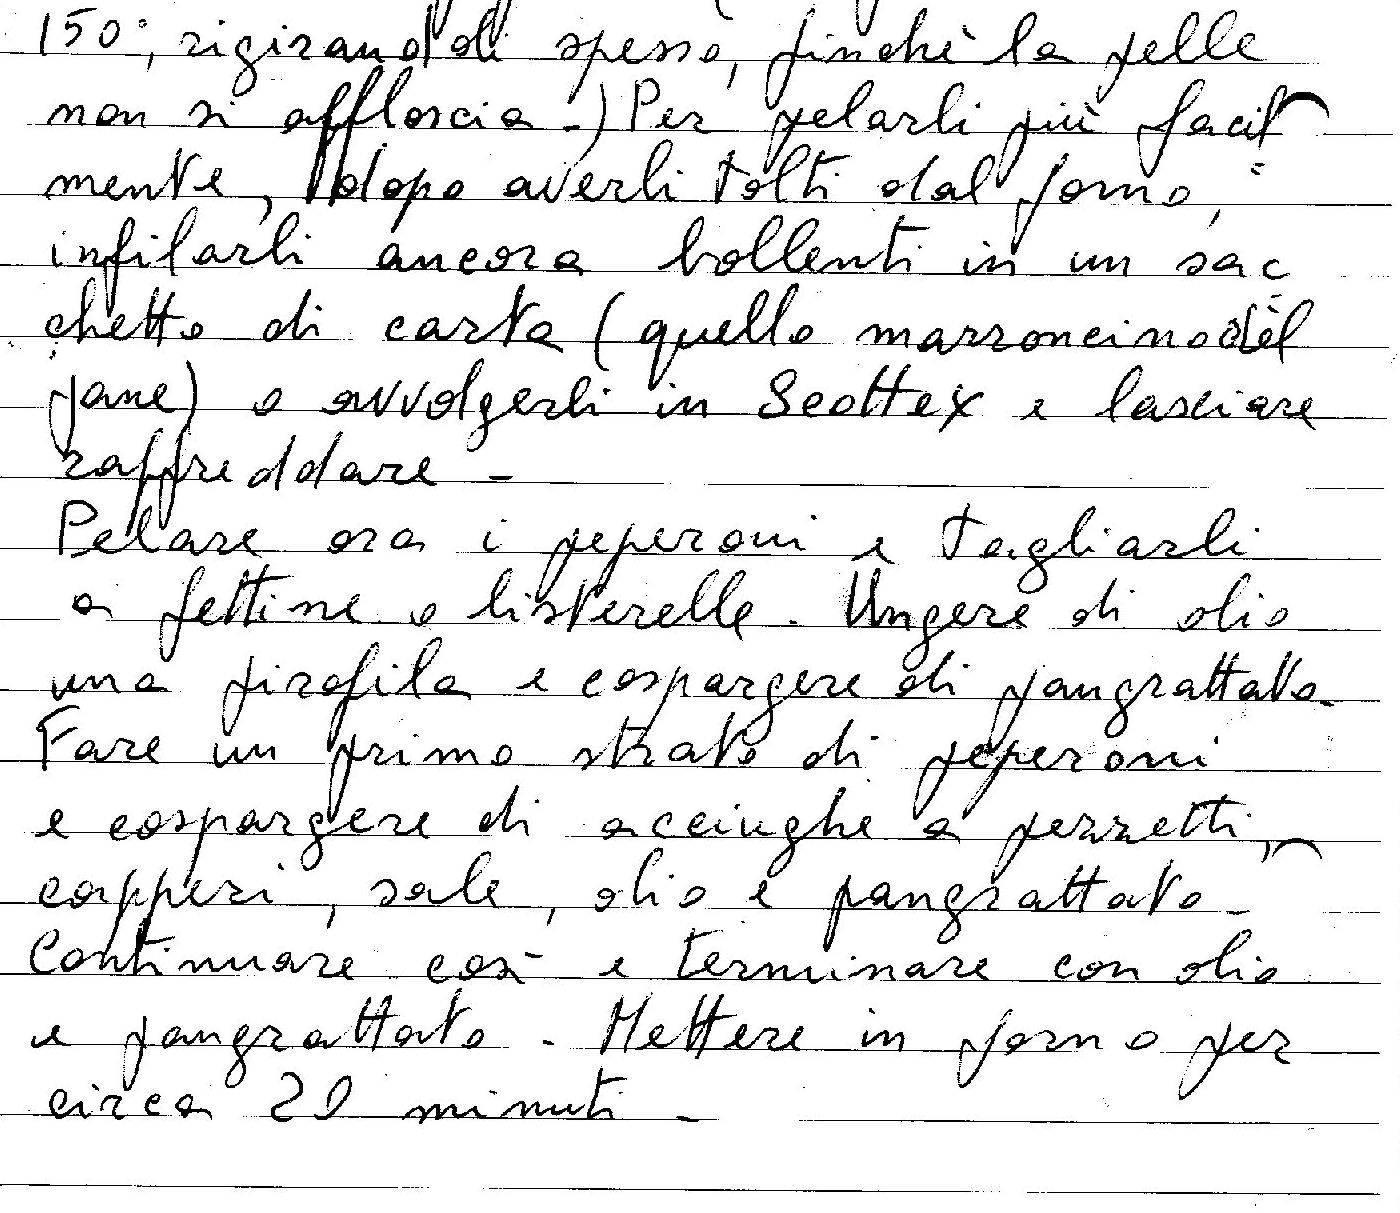 150°, rigirandoli spesso, finchè la pelle
non si affloscia.) Per pelarli più facil
mente, dopo averli tolti dal forno,
infilarli ancora bollenti in un sac
chetto di carta (quello marroncino del
pane) o avvolgerli in Scottex e lasciare
raffreddare -
Pelare ora i peperoni e tagliarli
a fettine o listerelle. Ungere di olio
una pirofila e cospargere di pangrattato.
Fare un primo strato di peperoni
e cospargere di acciughe a pezzetti,
capperi, sale, olio e pangrattato -
Continuare così e terminare con olio
e pangrattato. Mettere in forno per
circa 20 minuti -